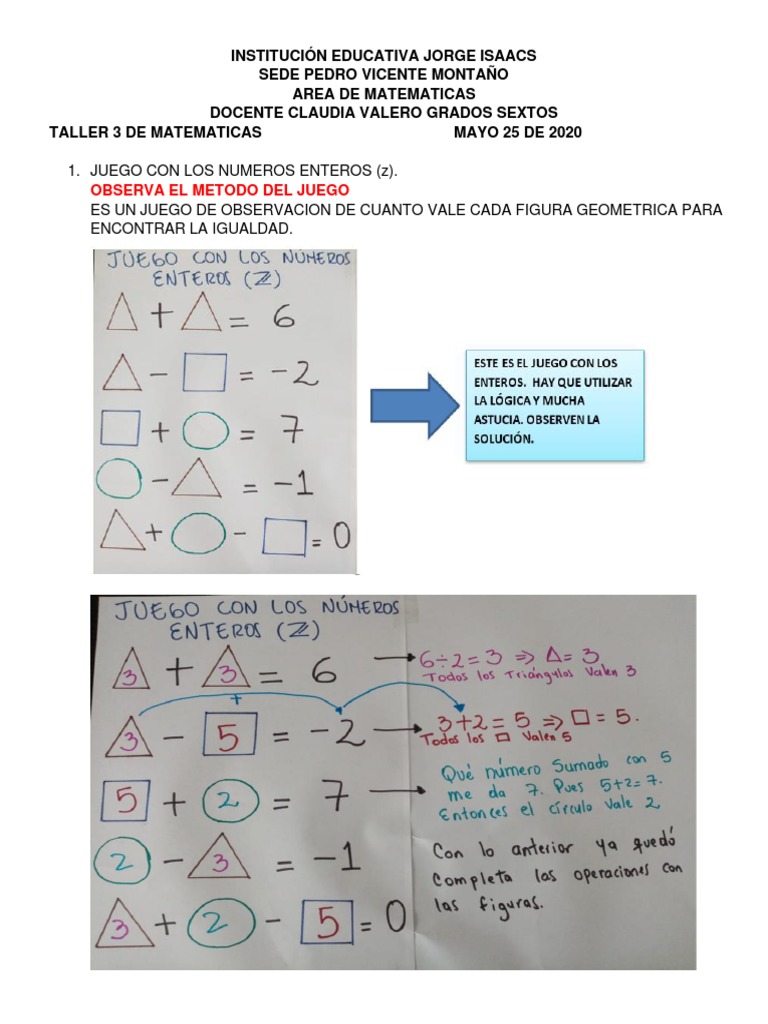 INSTITUCIÓN EDUCATIVA JORGE ISAACS
SEDE PEDRO VICENTE MONTAÑO
AREA DE MATEMATICAS
DOCENTE CLAUDIA VALERO GRADOS SEXTOS
TALLER 3 DE MATEMATICAS MAYO 25 DE 2020
1. JUEGO CON LOS NUMEROS ENTEROS (z).
OBSERVA EL METODO DEL JUEGO
ES UN JUEGO DE OBSERVACION DE CUANTO VALE CADA FIGURA GEOMETRICA PARA
ENCONTRAR LA IGUALDAD.
JUEGO CON LOS NÚMEROS
ENTEROS (ℤ)
△ + △ = 6
△ - □ = -2
□ + ○ = 7
○ - △ = -1
△ + ○ - □ = 0
ESTE ES EL JUEGO CON LOS
ENTEROS. HAY QUE UTILIZAR
LA LÓGICA Y MUCHA
ASTUCIA. OBSERVEN LA
SOLUCIÓN.
JUEGO CON LOS NÚMEROS
ENTEROS (ℤ)
3 + 3 = 6
6÷2=3 ⇒ △=3
Todos los Triángulos Valen 3
+
3 - 5 = -2
3+2=5 ⇒ □=5.
Todos los □ Valen 5
5 + 2 = 7
Qué número Sumado con 5
me da 7. Pues 5+2=7.
Entonces el círculo Vale 2
2 - 3 = -1
3 + 2 - 5 = 0
Con lo anterior ya quedó
Completa las operaciones con
las figuras.